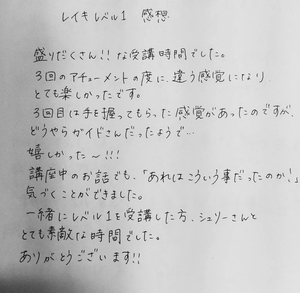 レイキ レベル1 感想
盛りだくさん!! な受講時間でした。
3回のアチューメントの度に、違う感覚になり、
とても楽しかったです。
3回目は手を握ってもらった感覚があったのですが、
どうやらガイドさんだったようで…
嬉しかった〜!!!
講座中のお話でも、「あれはこういう事だったのか!」
気づくことができました。
一緒にレベル1を受講した方、シェリーさんと
とても素敵な時間でした。
ありがとうございます!!